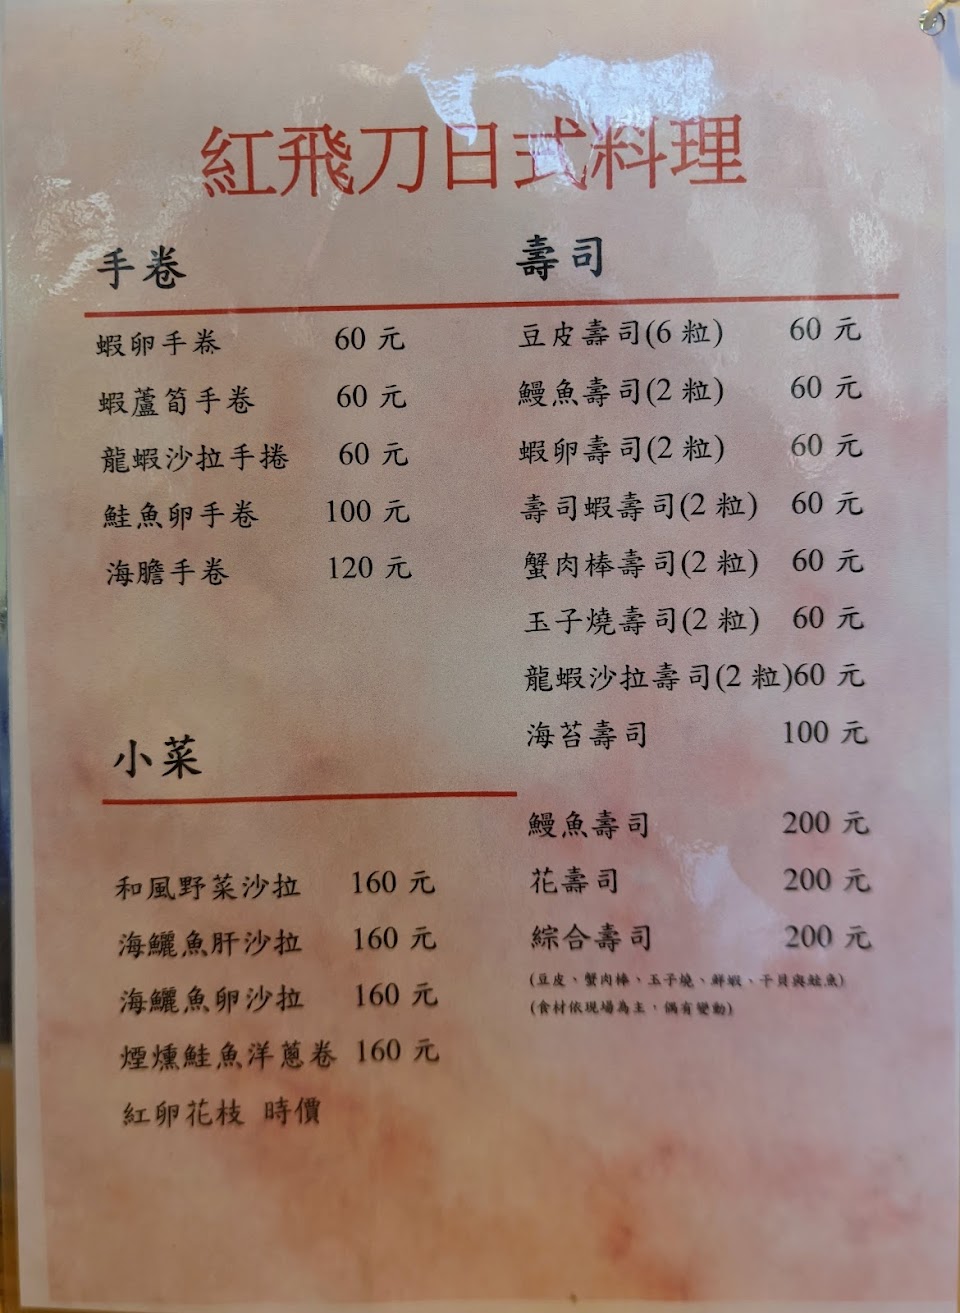 紅飛刀日式料理
手卷
蝦卵手卷 60 元
蝦蘆筍手卷 60 元
龍蝦沙拉手捲 60 元
鮭魚卵手卷 100 元
海膽手卷 120 元
小菜
和風野菜沙拉 160 元
海鱺魚肝沙拉 160 元
海鱺魚卵沙拉 160 元
煙燻鮭魚洋蔥卷 160 元
紅卵花枝 時價
壽司
豆皮壽司(6 粒) 60 元
鰻魚壽司(2 粒) 60 元
蝦卵壽司(2 粒) 60 元
壽司蝦壽司(2 粒) 60 元
蟹肉棒壽司(2 粒) 60 元
玉子燒壽司(2 粒) 60 元
龍蝦沙拉壽司(2 粒)60 元
海苔壽司 100 元
鰻魚壽司 200 元
花壽司 200 元
綜合壽司 200 元
(豆皮、蟹肉棒、玉子燒、鮮蝦、干貝與鮭魚)
(食材依現場為主，偶有變動)